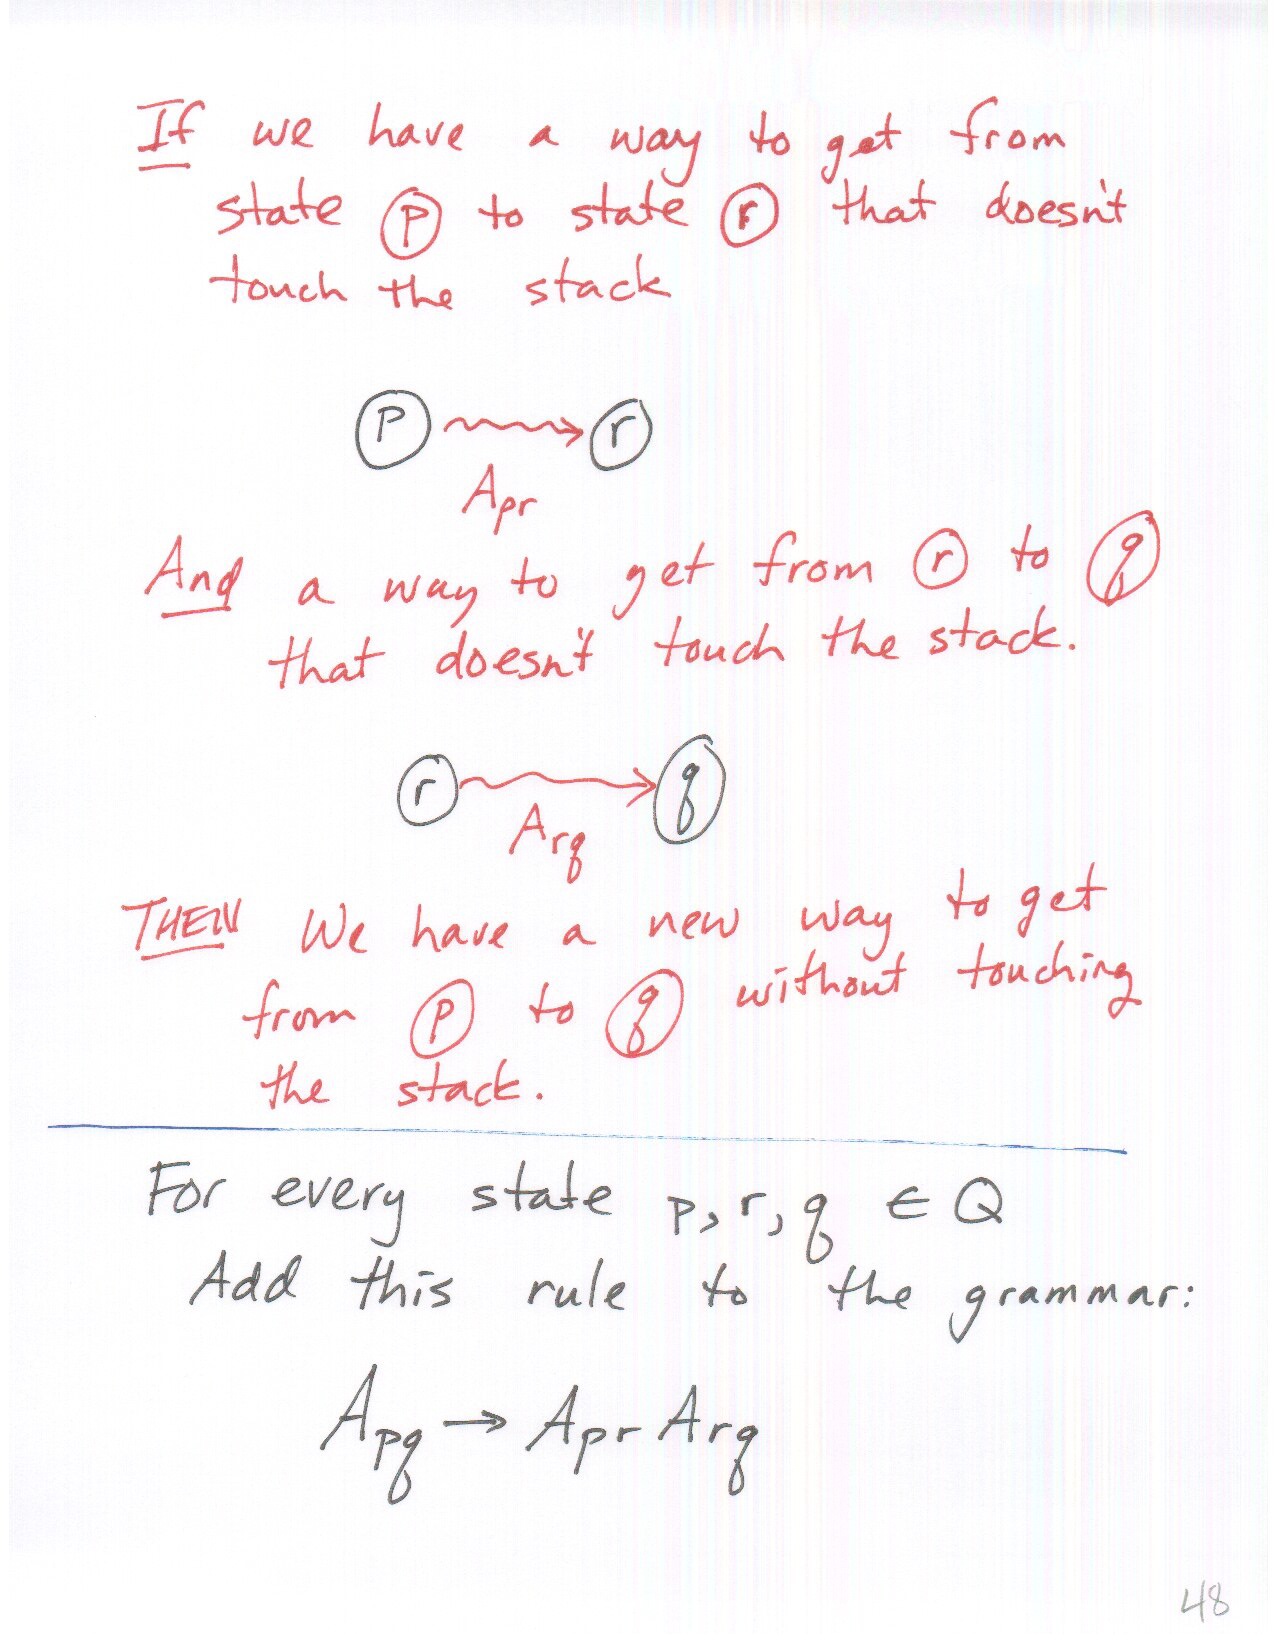 If we have a way to get from
state p to state r that doesn't
touch the stack
p r
Apr
And a way to get from r to q
that doesn't touch the stack.
r q
Arq
THEN We have a new way to get
from p to q without touching
the stack.
For every state p, r, q ∈ Q
Add this rule to the grammar:
Apq → Apr Arq
48